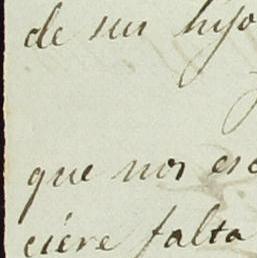 de sus hijo
que nos esc
ciere falta